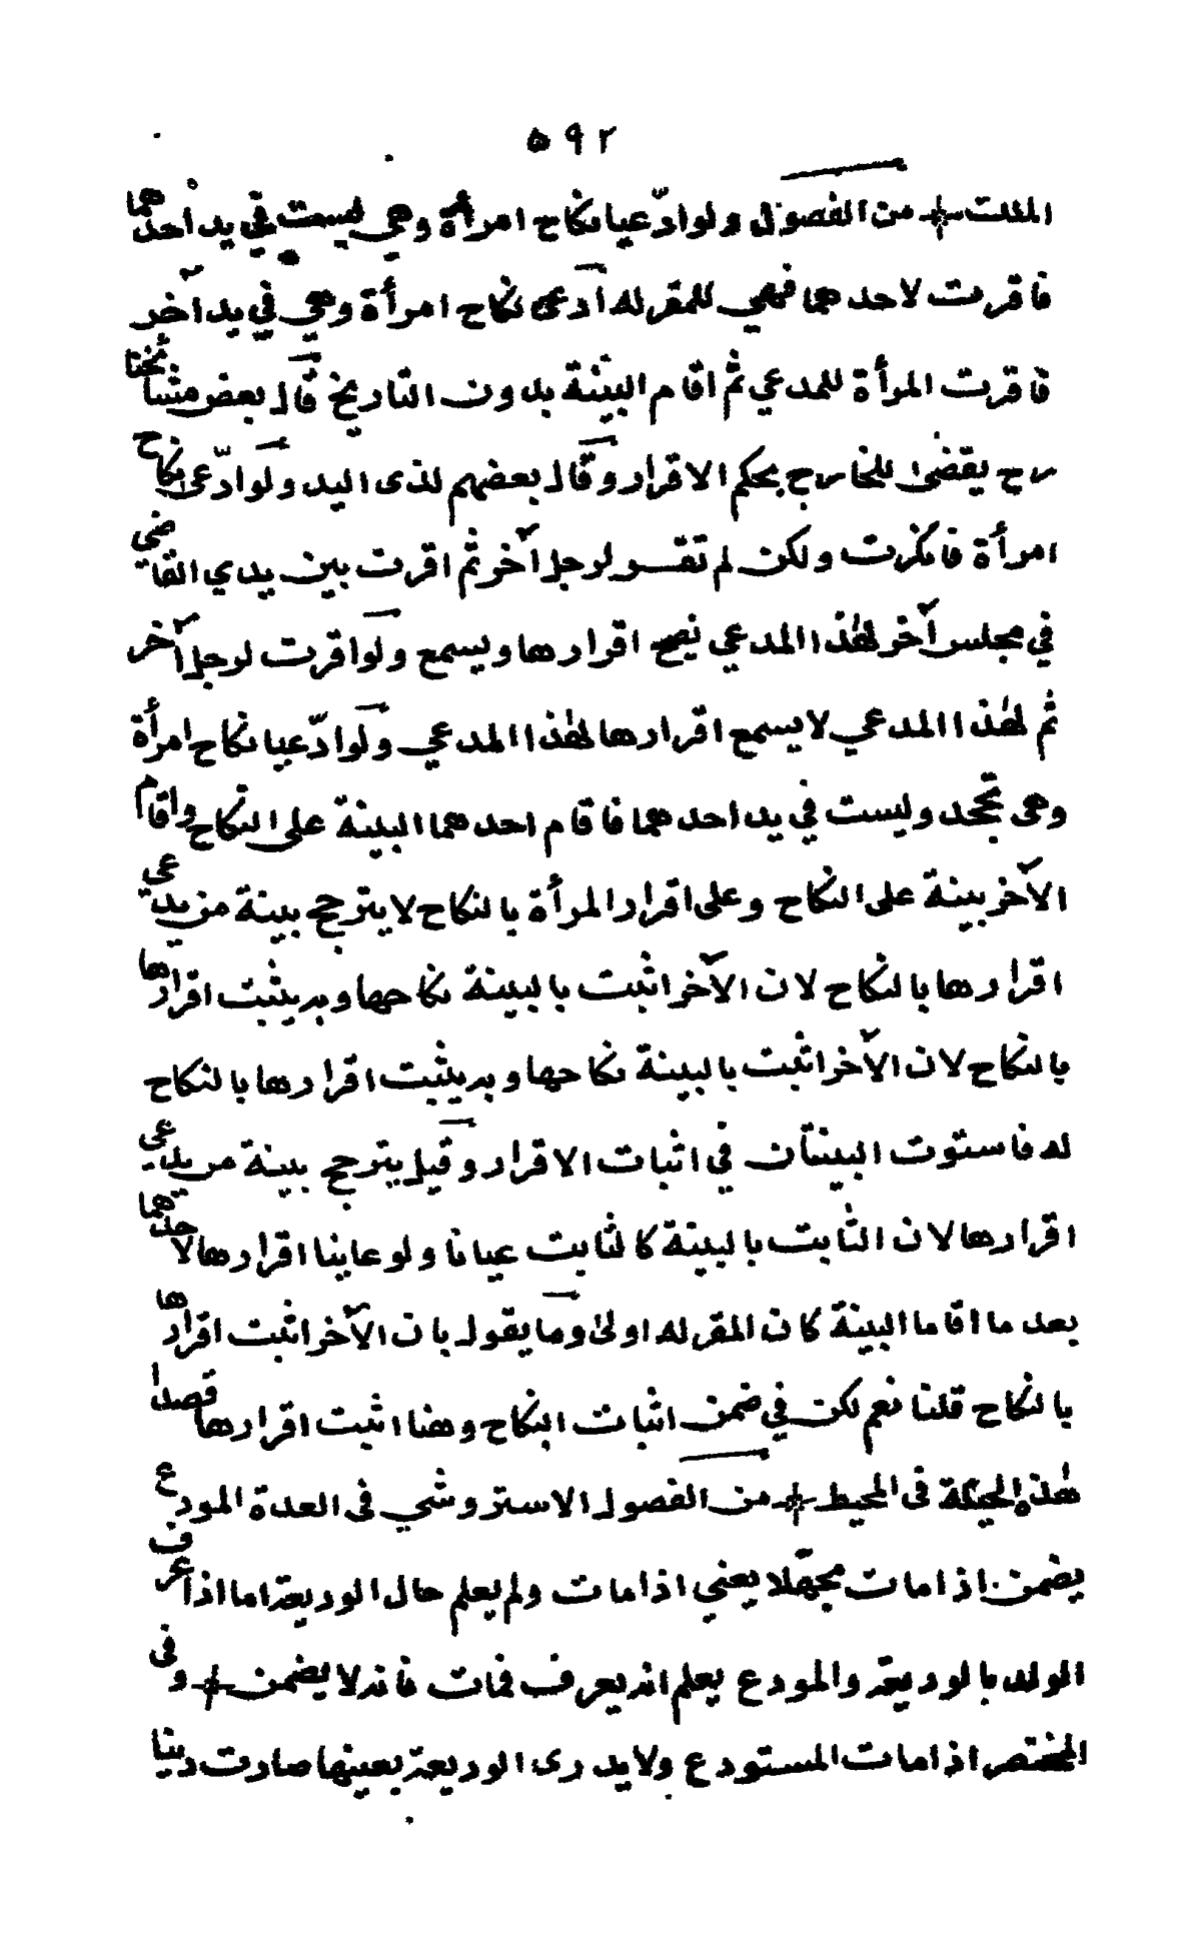 ٥٩٢
الملك + من الفصول ولو ادّعيا نكاح امرأة وهي ليست في يد أحدهما
فاقرت لاحدهما فهي للمقر له ادعى نكاح امرأة وهي في يد آخر
فاقرت المرأة للمدعي ثم اقام البيّنة بدون التاريخ قال بعض مشايخنا
رح يقضى للخارج بحكم الاقرار وقال بعضهم لذى اليد ولو ادّعى نكاح
امرأة فانكرت ولكن لم تقر لرجل آخر ثم اقرت بين يدي القاضي
في مجلس آخر لهذا المدعي يصح اقرارها ويسمع ولو اقرت لرجل آخر
ثم لهذا المدعي لا يسمع اقرارها لهذا المدعي ولو ادّعيا نكاح امرأة
وهى تجحد وليست في يد احدهما فاقام احدهما البينة على النكاح واقام
الآخر بينة على النكاح وعلى اقرار المرأة بالنكاح لا يترجح بينة من يدعي
اقرارها بالنكاح لان الآخر اثبت بالبينة نكاحها وبه يثبت اقرارها
بالنكاح لان الآخر اثبت بالبينة نكاحها وبه يثبت اقرارها بالنكاح
له فاستوت البينتان في اثبات الاقرار وقيل يترجح بينة من يدعي
اقرارها لان الثابت بالبينة كالثابت عيانا ولو عاينا اقرارها لاحدهما
بعد ما اقاما البينة كان المقر له اولى وما يقول بان الآخر اثبت اقرارها
بالنكاح قلنا نعم لكن في ضمن اثبات النكاح وهنا اثبت اقرارها قصدا
هذه الجملة فى المحيط + من الفصول الاستروشني فى العدة المودع
يضمن اذا مات مجهّلا يعني اذا مات ولم يعلم حال الوديعة اما اذا عرف
الولد بالوديعة والمودع يعلم انه يعرف فمات فانه لا يضمن + وفى
المختصر اذا مات المستودع ولا يدرى الوديعة بعينها صارت دينا